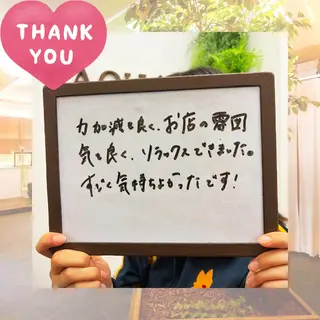 THANK
YOU
力加減も良く、お店の雰囲
気も良く、リラックスできました。
すごく気持ちよかったです!